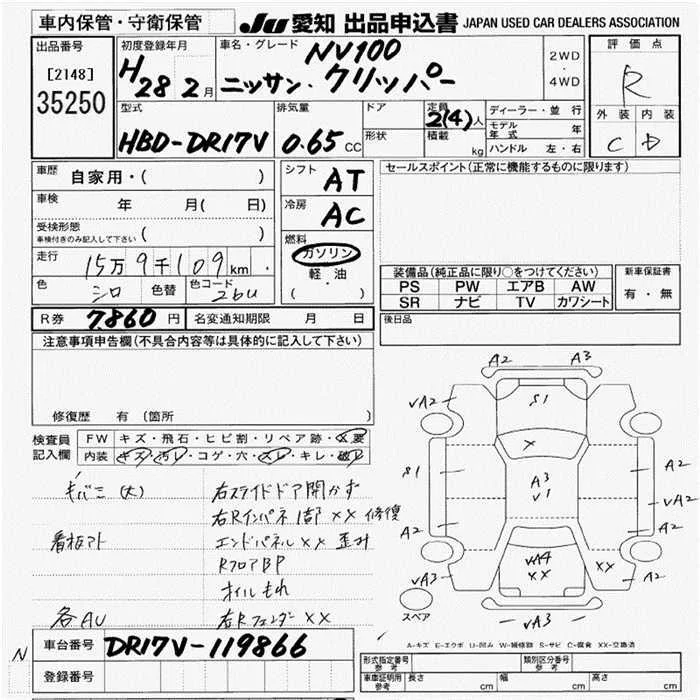 車内保管・守衛保管
JU 愛知 出品申込書 JAPAN USED CAR DEALERS ASSOCIATION
出品番号
[2148]
35250
初度登録年月
H28 2月
車名・グレード
NV100
ニッサン・クリッパー
2WD
・
4WD
評価点
R
外装 内装
C D
型式
HBD-DR17V
排気量
0.65 CC
ドア
形状
定員
2(4)人
積載
kg
ディーラー・並行
モデル年式 年
ハンドル 左・右
車歴
自家用・( )
車検
年 月( 日)
受検形態
車検付きのみ記入して下さい ( )
走行
15万9千109km
色
シロ
色替
色コード
26U
シフト
AT
冷房
AC
燃料
ガソリン
軽油
( ・ )
セールスポイント(正常に機能するものに限ります)
装備品(純正品に限り○をつけてください)
PS PW エアB AW
SR ナビ TV カワシート
新車保証書
有・無
後日品
R券 7,860円 名変通知期限 月 日
注意事項申告欄(不具合内容等は具体的に記入して下さい)
修復歴 有 〔箇所 〕
検査員記入欄
FW キズ・飛石・ヒビ割・リペア跡・X要
内装 キズ・汚レ・コゲ・穴・スレ・キレ・破レ
キバコ (大) 右スライドドア開かず
右Rインパネ 1部 XX 修復
看板アト エンドパネル XX 歪み
Rフロア BP
オイルもれ
各AU 右Rフェンダー XX
A2 A3
VA2 S1 A2
X
S1 A3 A2
V1 VA2
A2 A2
VA4
XX XX
VA3 A2
VA3
スペア
A-キズ E-エクボ U-凹み W-補修跡 S-サビ C-腐食 XX-交換済
N
車台番号 DR17V-119866
登録番号
形式指定番号 参考
類別区分番号 参考
車庫証明用 参考 長さ cm 幅 cm 高さ cm